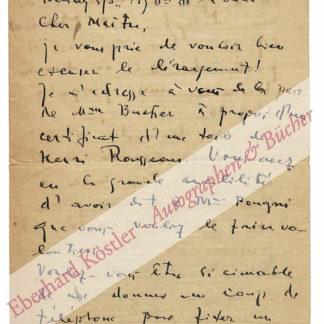 Cher Maître,
je vous prie de vouloir bien
excuser le dérangement!
Je m'adresse à vous de la part
de Mme Bucher à propos d'un
certificat d'une toile de
Henri Rousseau. Vous avez
eu la grande amabilité
d'avoir dit à Mr Pougni
que vous vouliez le faire vo-
lontiers.
Voulez-vous être si aimable
de me donner un coup de
téléphone pour fixer un
Eberhard Köstler Autographen & Bücher